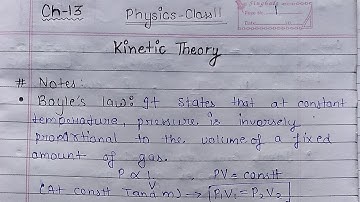 Ch-13
Physics-Class11
1
Kinetic Theory
# Notes:
• Boyle's law: It states that at constant
temperature, pressure is inversely
proportional to the volume of a fixed
amount of gas.
P ∝ 1/V PV = constt
(At constt T and m) → [P₁V₁ = P₂V₂]